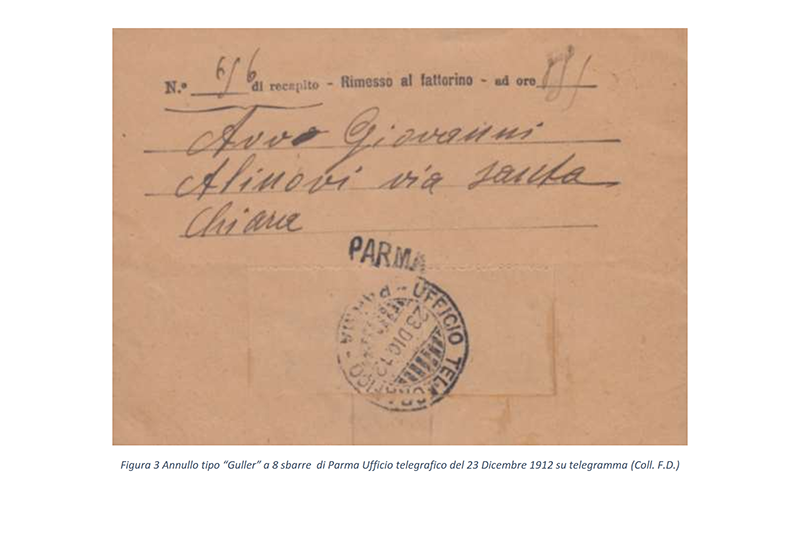 N.º 616 di recapito - Rimesso al fattorino - ad ore
Avvo Giovanni
Alinovi via santa
Chiara
PARMA
PARMA - UFFICIO TELEGRAFICO -
23 DIC 12
Figura 3 Annullo tipo “Guller” a 8 sbarre di Parma Ufficio telegrafico del 23 Dicembre 1912 su telegramma (Coll. F.D.)